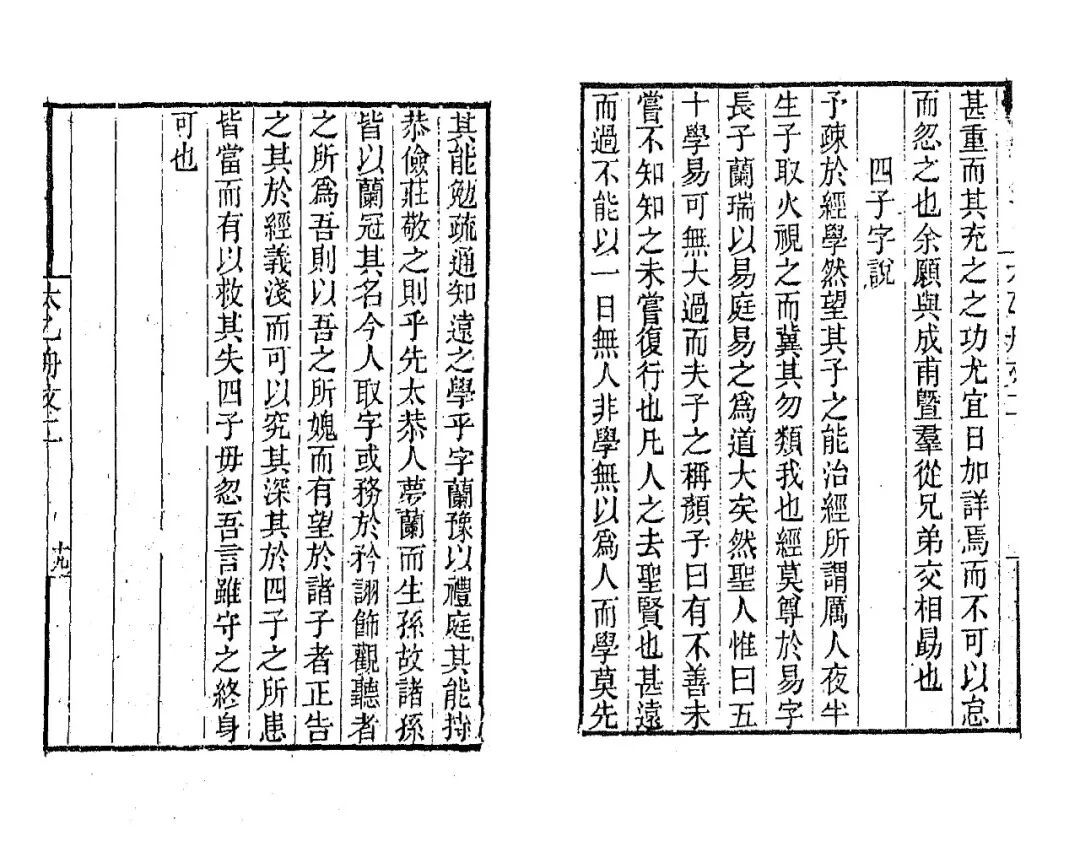 甚重而其充之之功尤宜日加詳焉而不可以怠
而忽之也余願與成甫暨羣從兄弟交相勗也
四子字說
予疎於經學然望其子之能治經所謂厲人夜半
生子取火視之而冀其勿類我也經莫尊於易字
長子蘭瑞以易庭易之為道大矣然聖人惟曰五
十學易可無大過而夫子之稱顏子曰有不善未
嘗不知知之未嘗復行也凡人之去聖賢也甚遠
而過不能以一日無人非學無以為人而學莫先
其能勉疏通知遠之學乎字蘭豫以禮庭其能持
恭儉莊敬之則乎先太恭人夢蘭而生孫故諸孫
皆以蘭冠其名今人取字或務於矜詡飾觀聽者
之所為吾則以吾之所媿而有望於諸子者正告
之其於經義淺而可以究其深其於四子之所患
皆當而有以救其失四子毋忽吾言雖守之終身
可也
太乙舟文二
十九